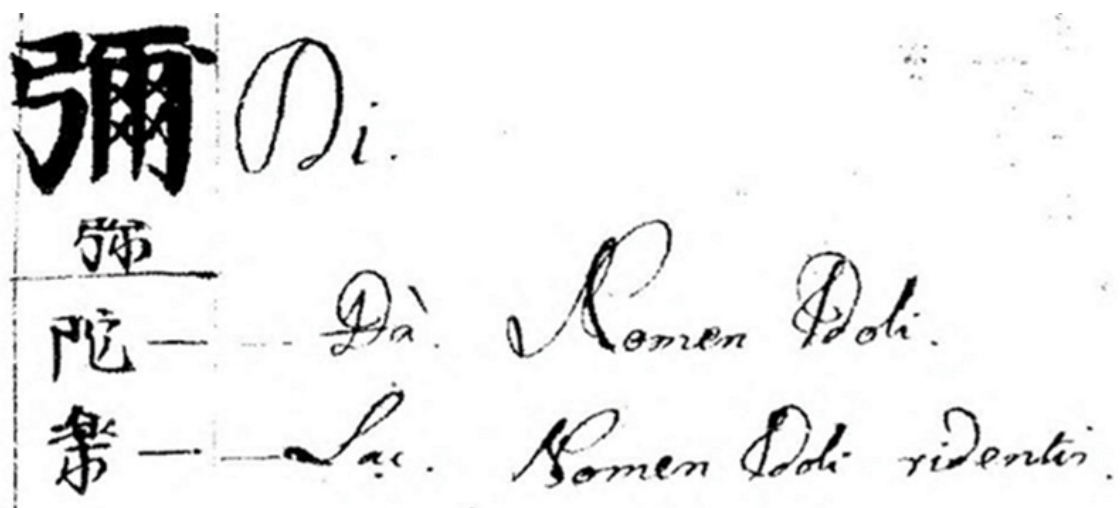 彌 Di.
弥
陀 — — Đà. Nomen Idoli.
樂 — — Lạc. Nomen Idoli ridentis.